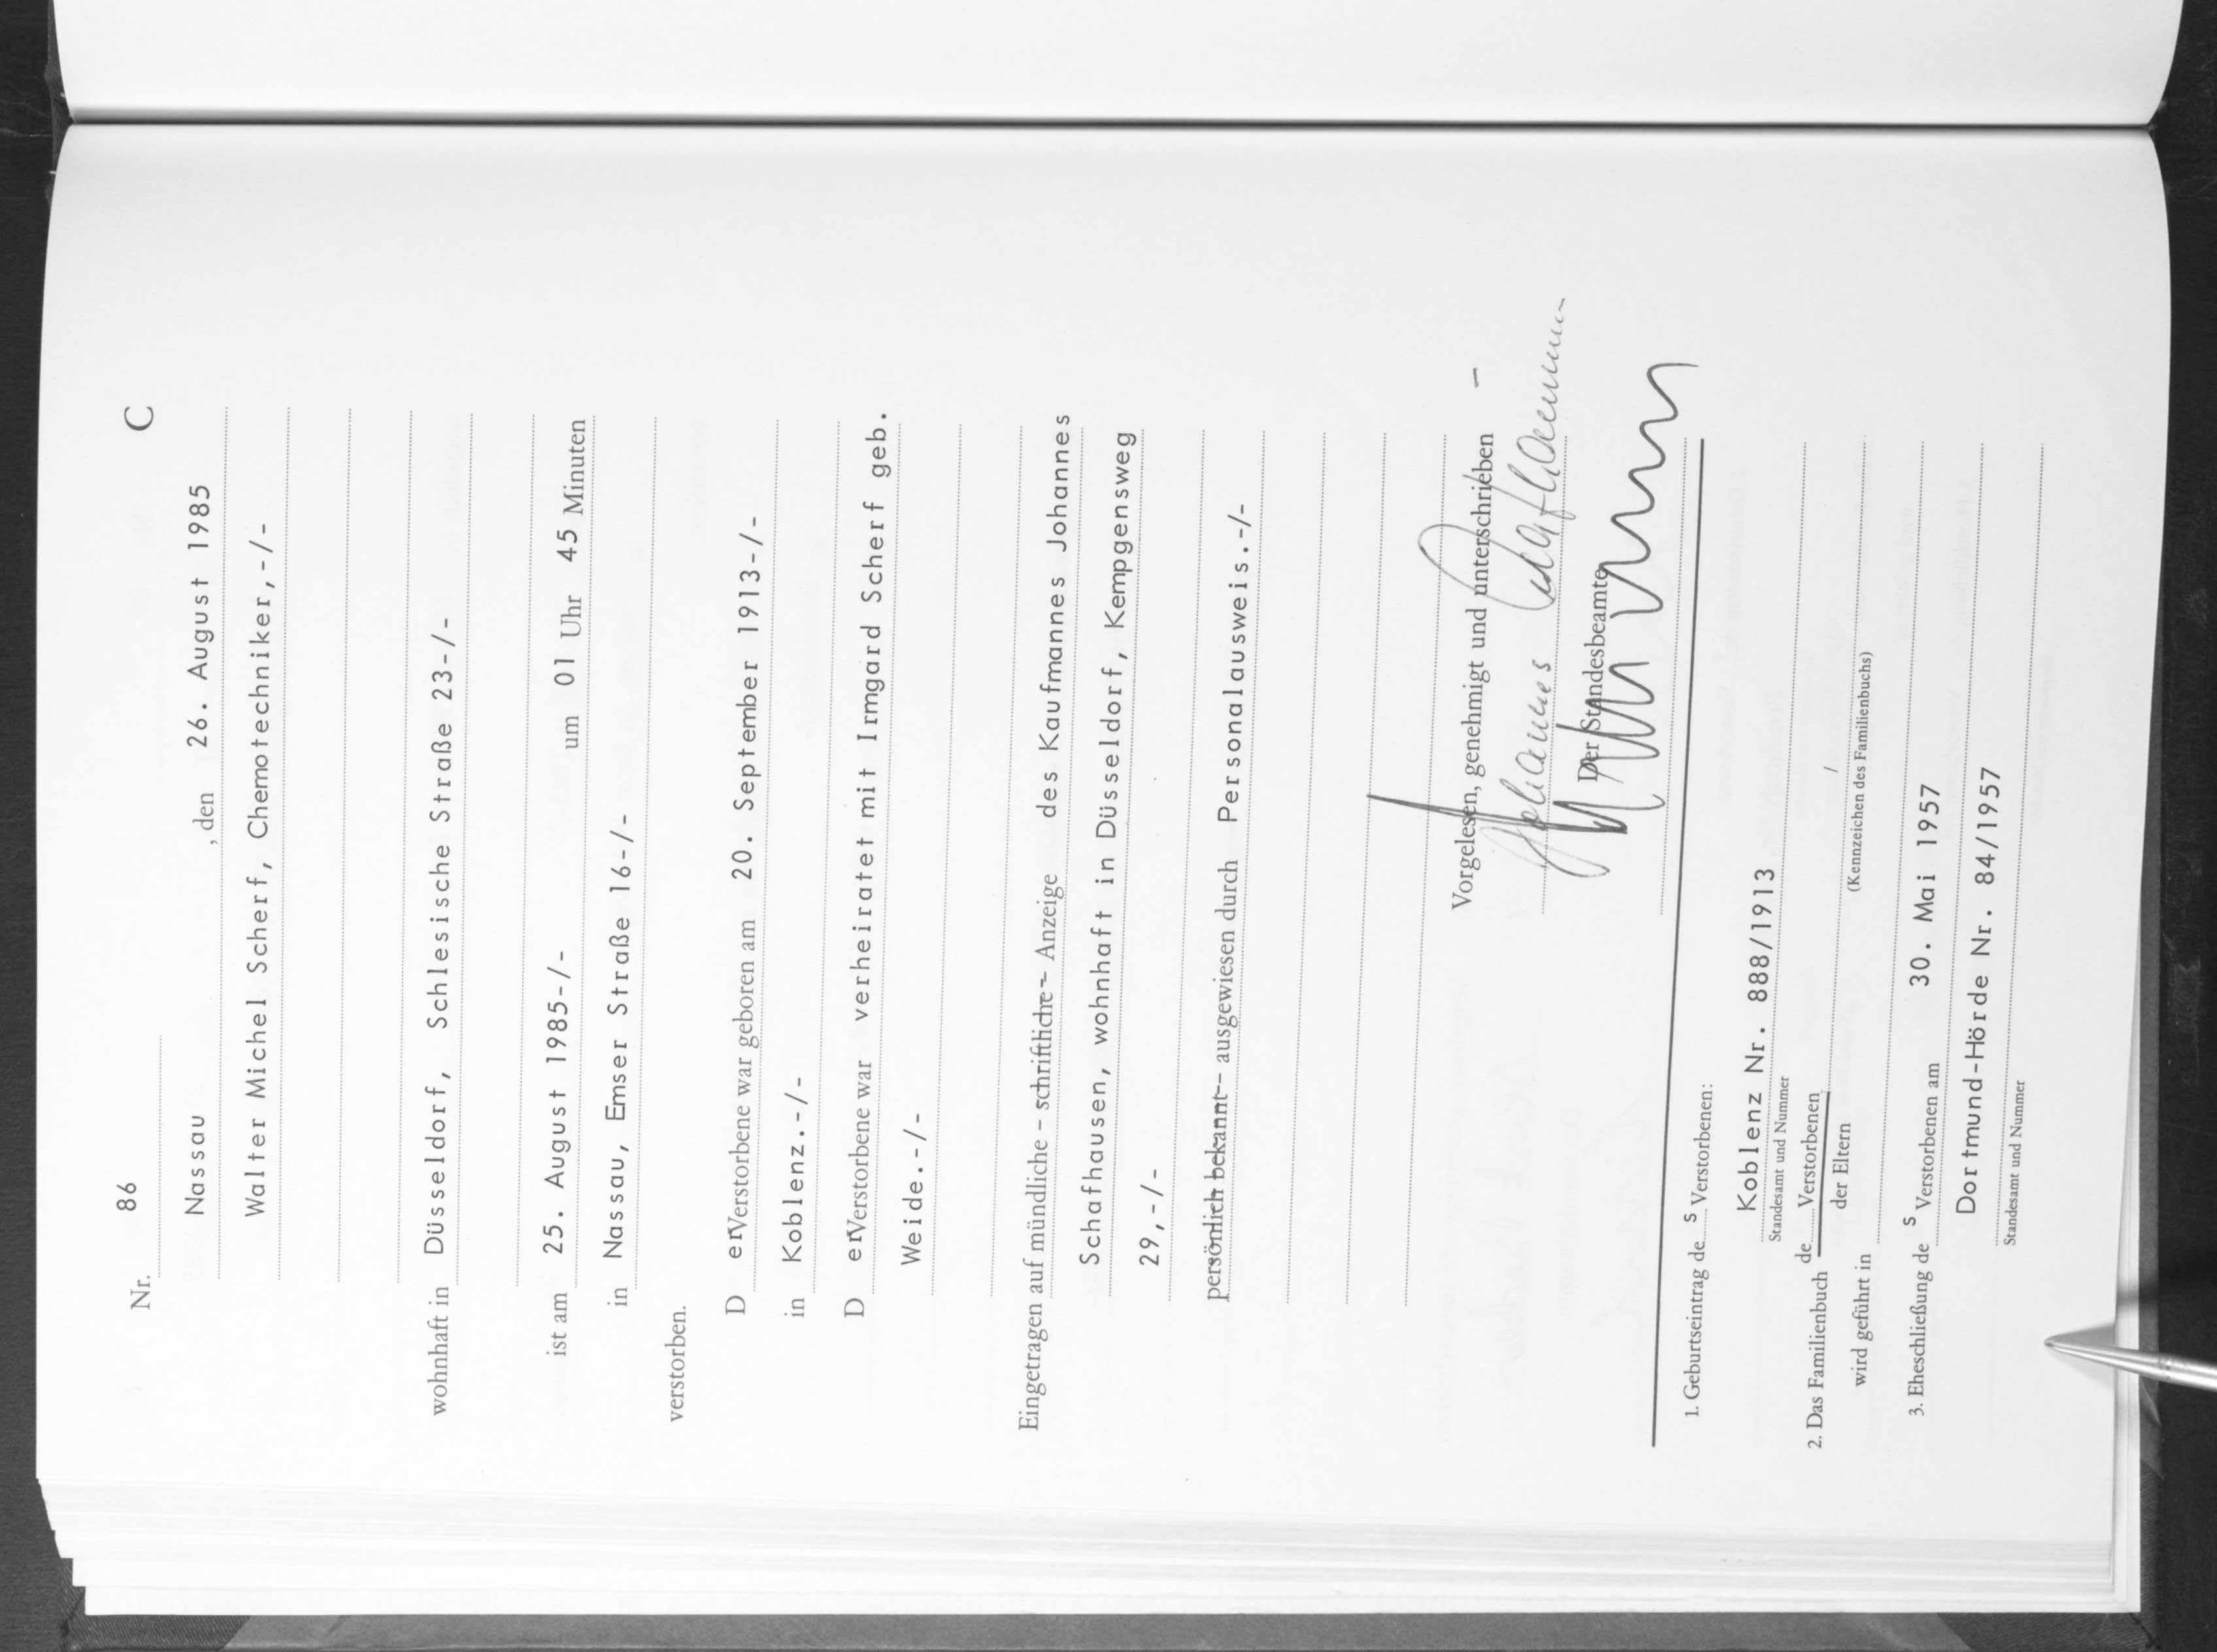 Nr. 86 C
Nassau , den 26. August 1985
Walter Michel Scherf, Chemotechniker,-/-
wohnhaft in Düsseldorf, Schlesische Straße 23-/-
ist am 25. August 1985-/- um 01 Uhr 45 Minuten
in Nassau, Emser Straße 16-/-
verstorben.
D erVerstorbene war geboren am 20. September 1913-/-
in Koblenz.-/-
D erVerstorbene war verheiratet mit Irmgard Scherf geb.
Weide.-/-
Eingetragen auf mündliche - schriftliche - Anzeige des Kaufmannes Johannes
Schafhausen, wohnhaft in Düsseldorf, Kempgensweg
29,-/-
persönlich bekannt - ausgewiesen durch Personalausweis.-/-
Vorgelesen, genehmigt und unterschrieben -
Johannes Schafhausen
Der Standesbeamte
1. Geburtseintrag de s Verstorbenen:
Koblenz Nr. 888/1913
Standesamt und Nummer
2. Das Familienbuch de Verstorbenen /
der Eltern
wird geführt in (Kennzeichen des Familienbuchs)
3. Eheschließung de s Verstorbenen am 30. Mai 1957
Dortmund-Hörde Nr. 84/1957
Standesamt und Nummer